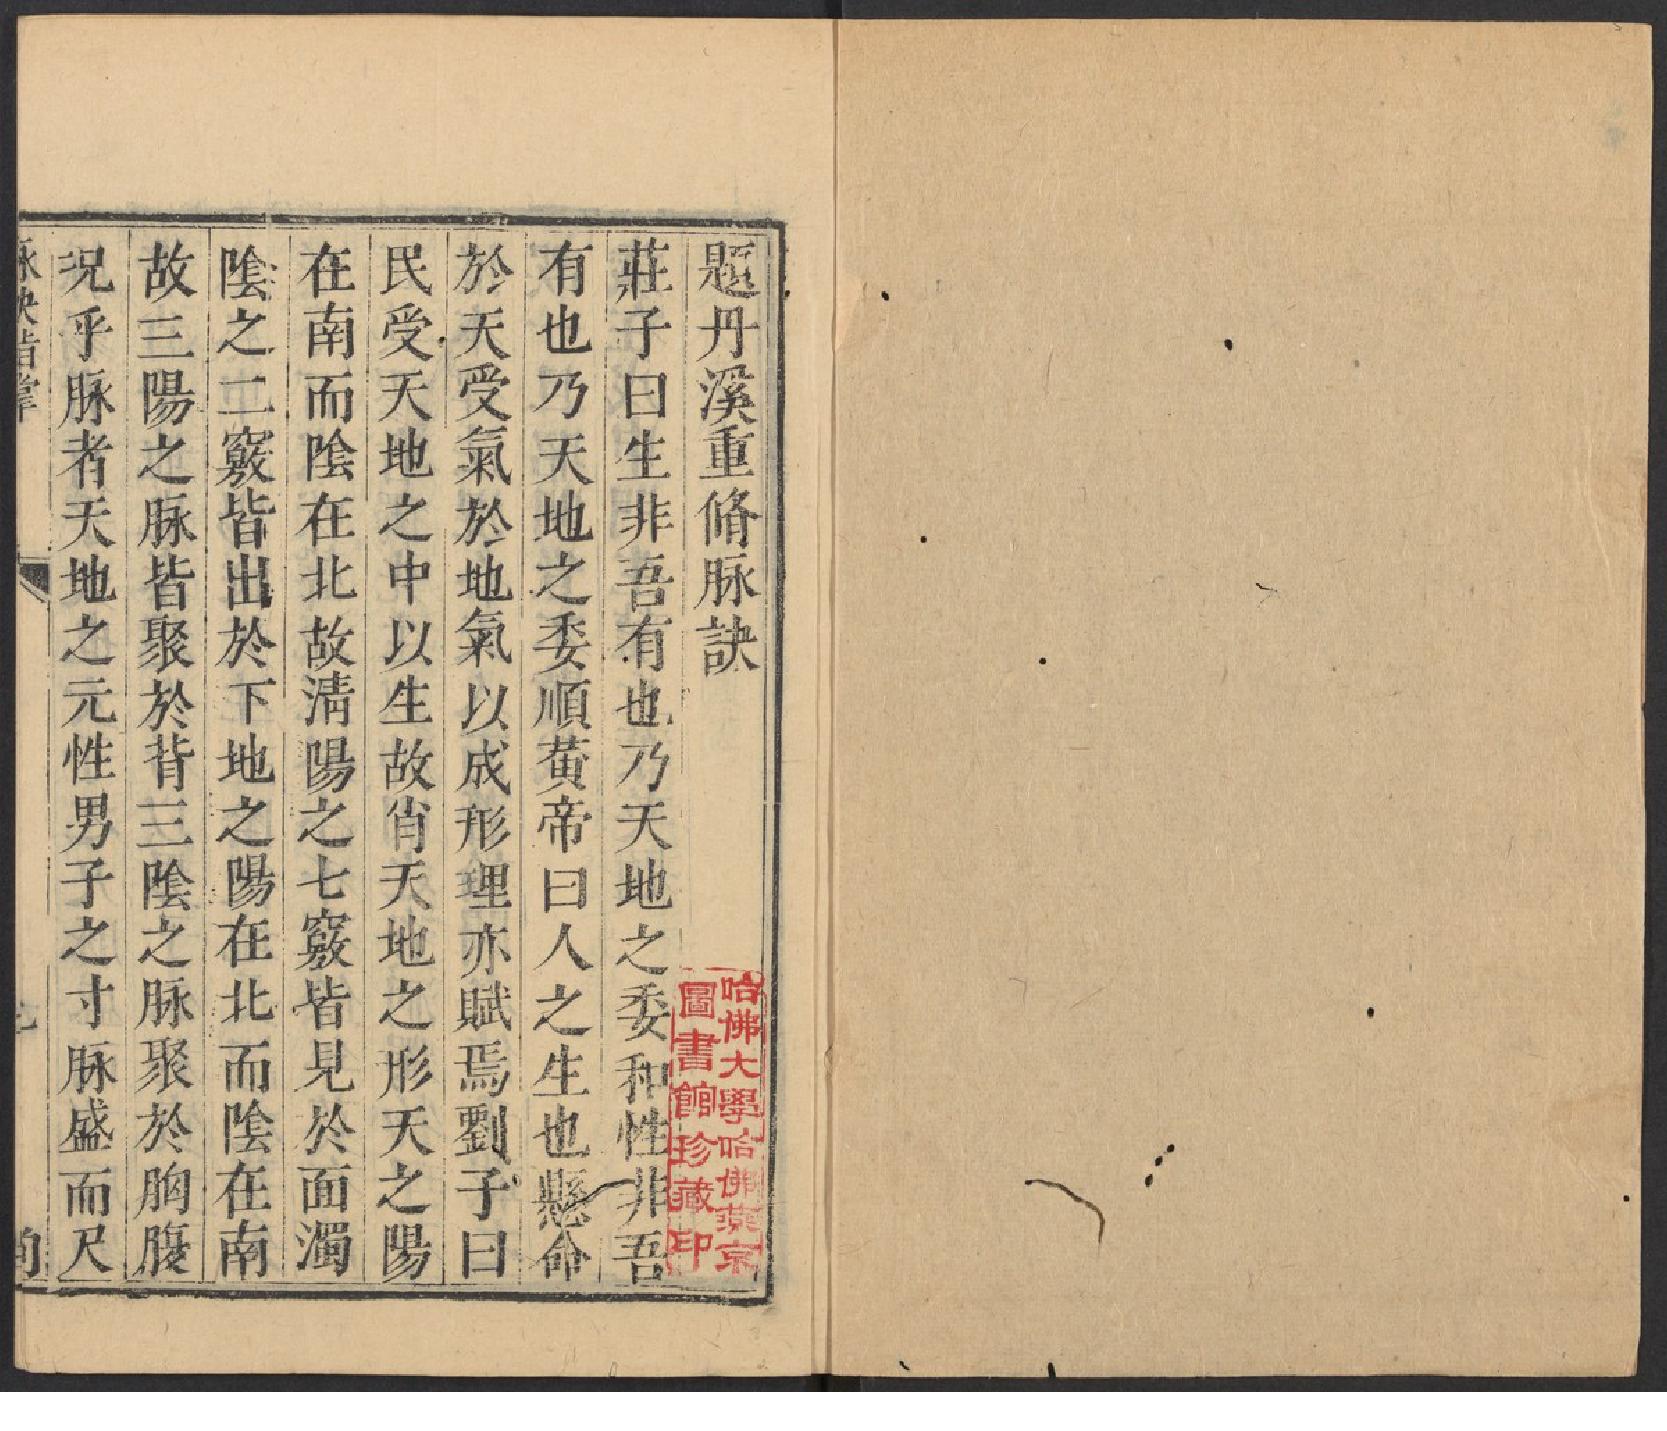 題丹溪重脩脉訣
莊子曰生非吾有也乃天地之委和性非吾
有也乃天地之委順黃帝曰人之生也懸命
於天受氣於地氣以成形理亦賦焉劉子曰
民受天地之中以生故肖天地之形天之陽
在南而陰在北故清陽之七竅皆見於面濁
陰之二竅皆出於下地之陽在北而陰在南
故三陽之脉皆聚於背三陰之脉聚於胸腹
况乎脉者天地之元性男子之寸脉盛而尺
哈佛大學哈佛燕京
圖書館珍藏印